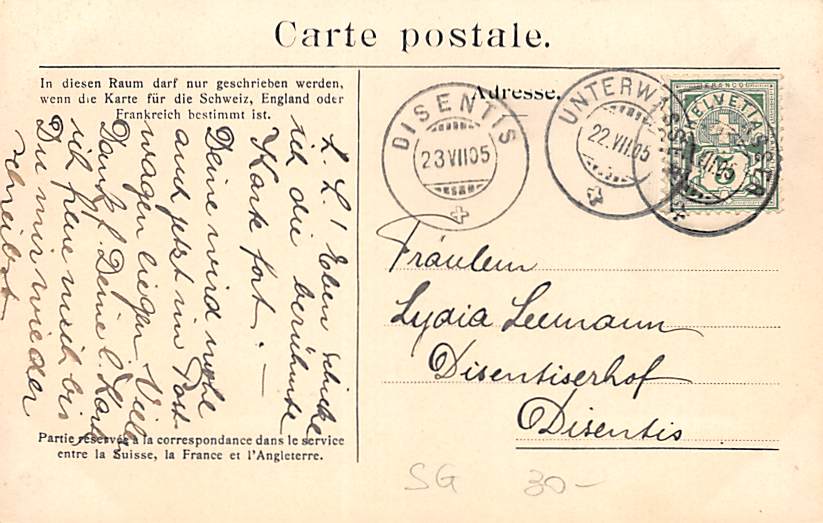 Carte postale.
In diesen Raum darf nur geschrieben werden,
wenn die Karte für die Schweiz, England oder
Frankreich bestimmt ist.
L. L.! Eben schicke
ich die berühmte
Karte fort. —
Deine wird wohl
auch jetzt im Post-
wagen liegen. Viele
Dank f. Deine l. Karte
ich freue mich bis
Du mir wieder
schreibst
Partie réservée à la correspondance dans le service
entre la Suisse, la France et l'Angleterre.
Adresse.
DISENTIS
23 VII 05
UNTERWASSER
22. VII. 05
HELVETIA
5
Fräulein
Lydia Leemann
Disentiserhof
Disentis
SG 30-